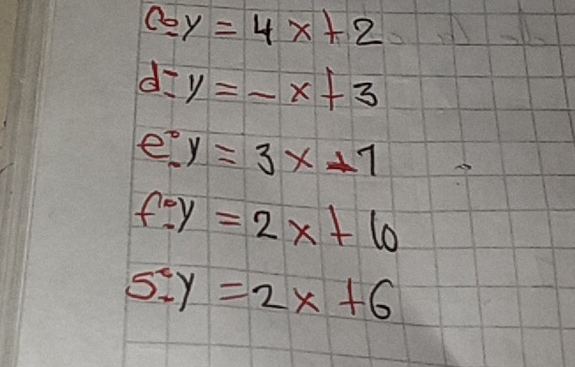 c: y = 4x + 2
d: y = -x + 3
e: y = 3x + 7
f: y = 2x + 6
s: y = 2x + 6